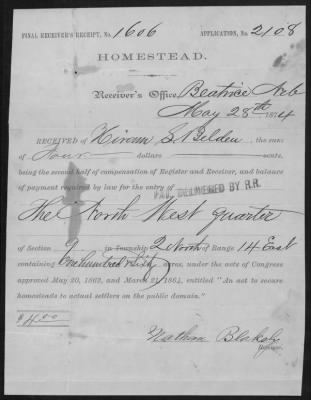 FINAL RECEIVER'S RECEIPT, No. 1606 APPLICATION, No. 2108
HOMESTEAD.
Receiver's Office, Beatrice Neb
May 28th 1874
RECEIVED of Hiram S. Belden, the sum
of Four dollars cents,
being the second half of compensation of Register and Receiver, and balance
of payment required by law for the entry of
DELIVERED BY R.R.
The North West quarter
of Section 9 in Township 2 North of Range 14 East
containing One hundred & Sixty Acres, under the acts of Congress
approved May 20, 1862, and March 21, 1864, entitled "An act to secure
homesteads to actual settlers on the public domain."
$4.00
Nathan Blakely
Receiver.